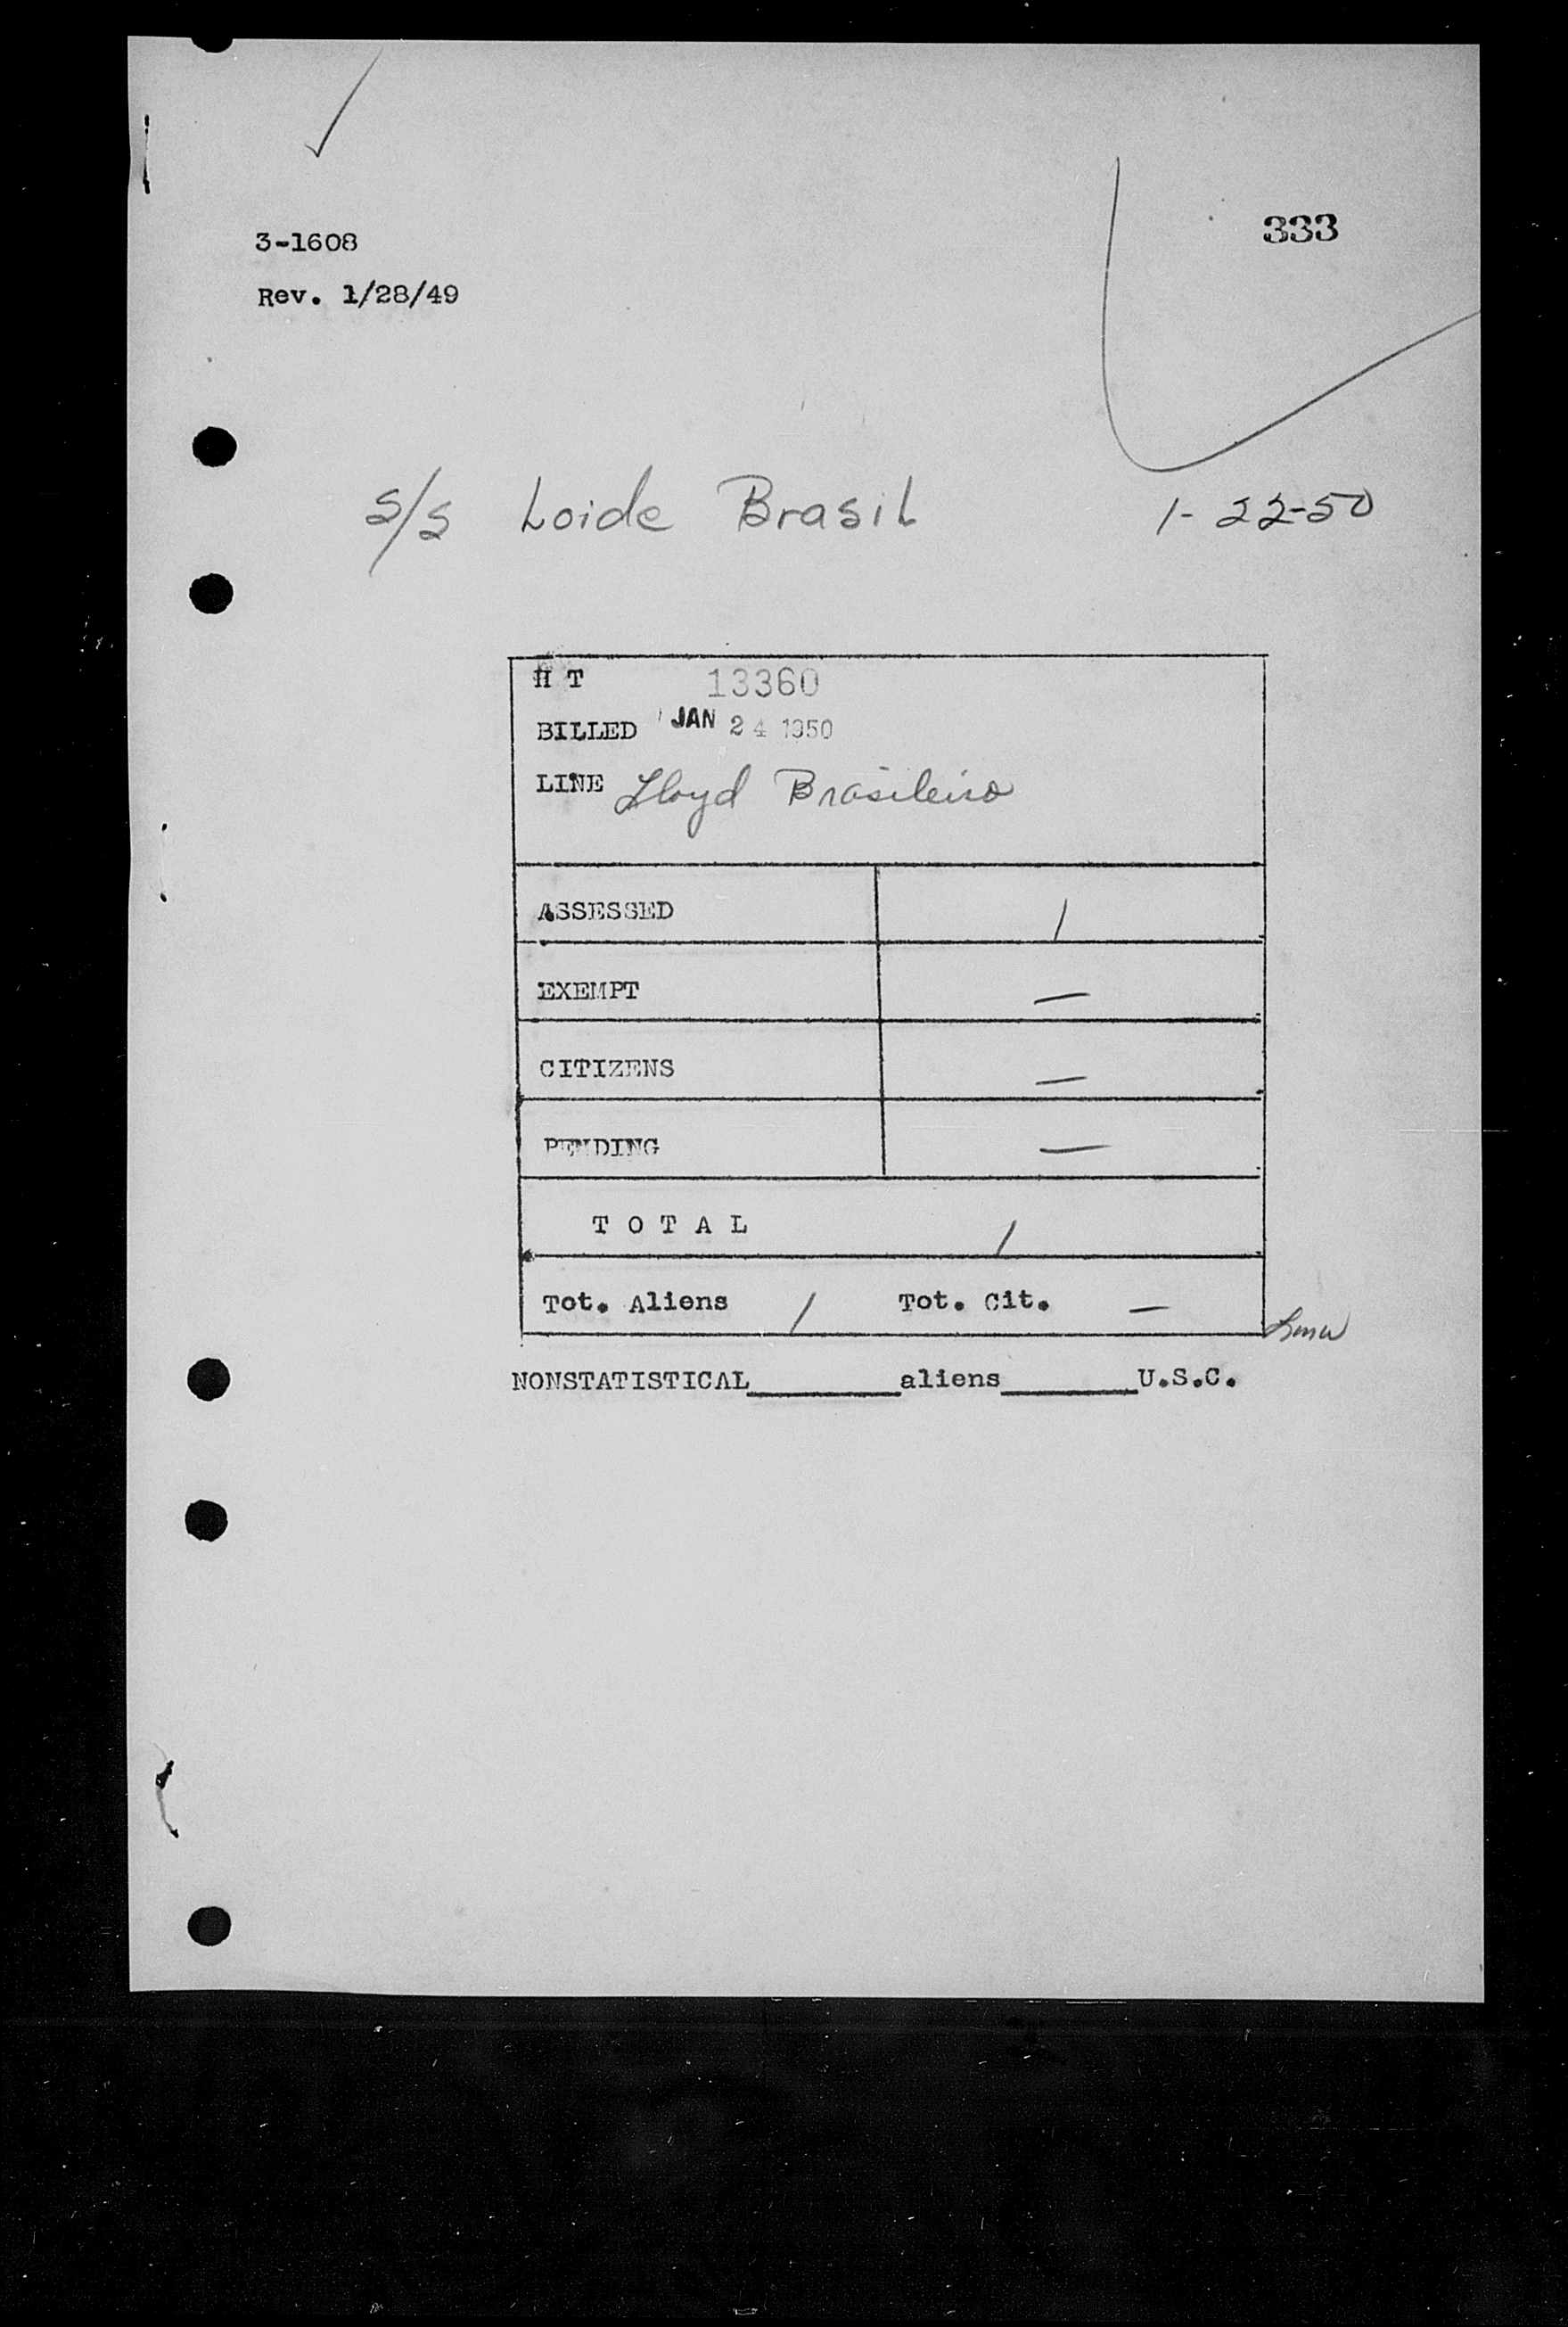 333
3-1608
Rev. 1/28/49
S/S Loide Brasil 1-22-50
H T 13360
BILLED JAN 24 1950
LINE Lloyd Brasileiro
ASSESSED 1
EXEMPT —
CITIZENS —
PENDING —
T O T A L 1
Tot. Aliens 1 Tot. Cit. —
NONSTATISTICAL________aliens________U.S.C.